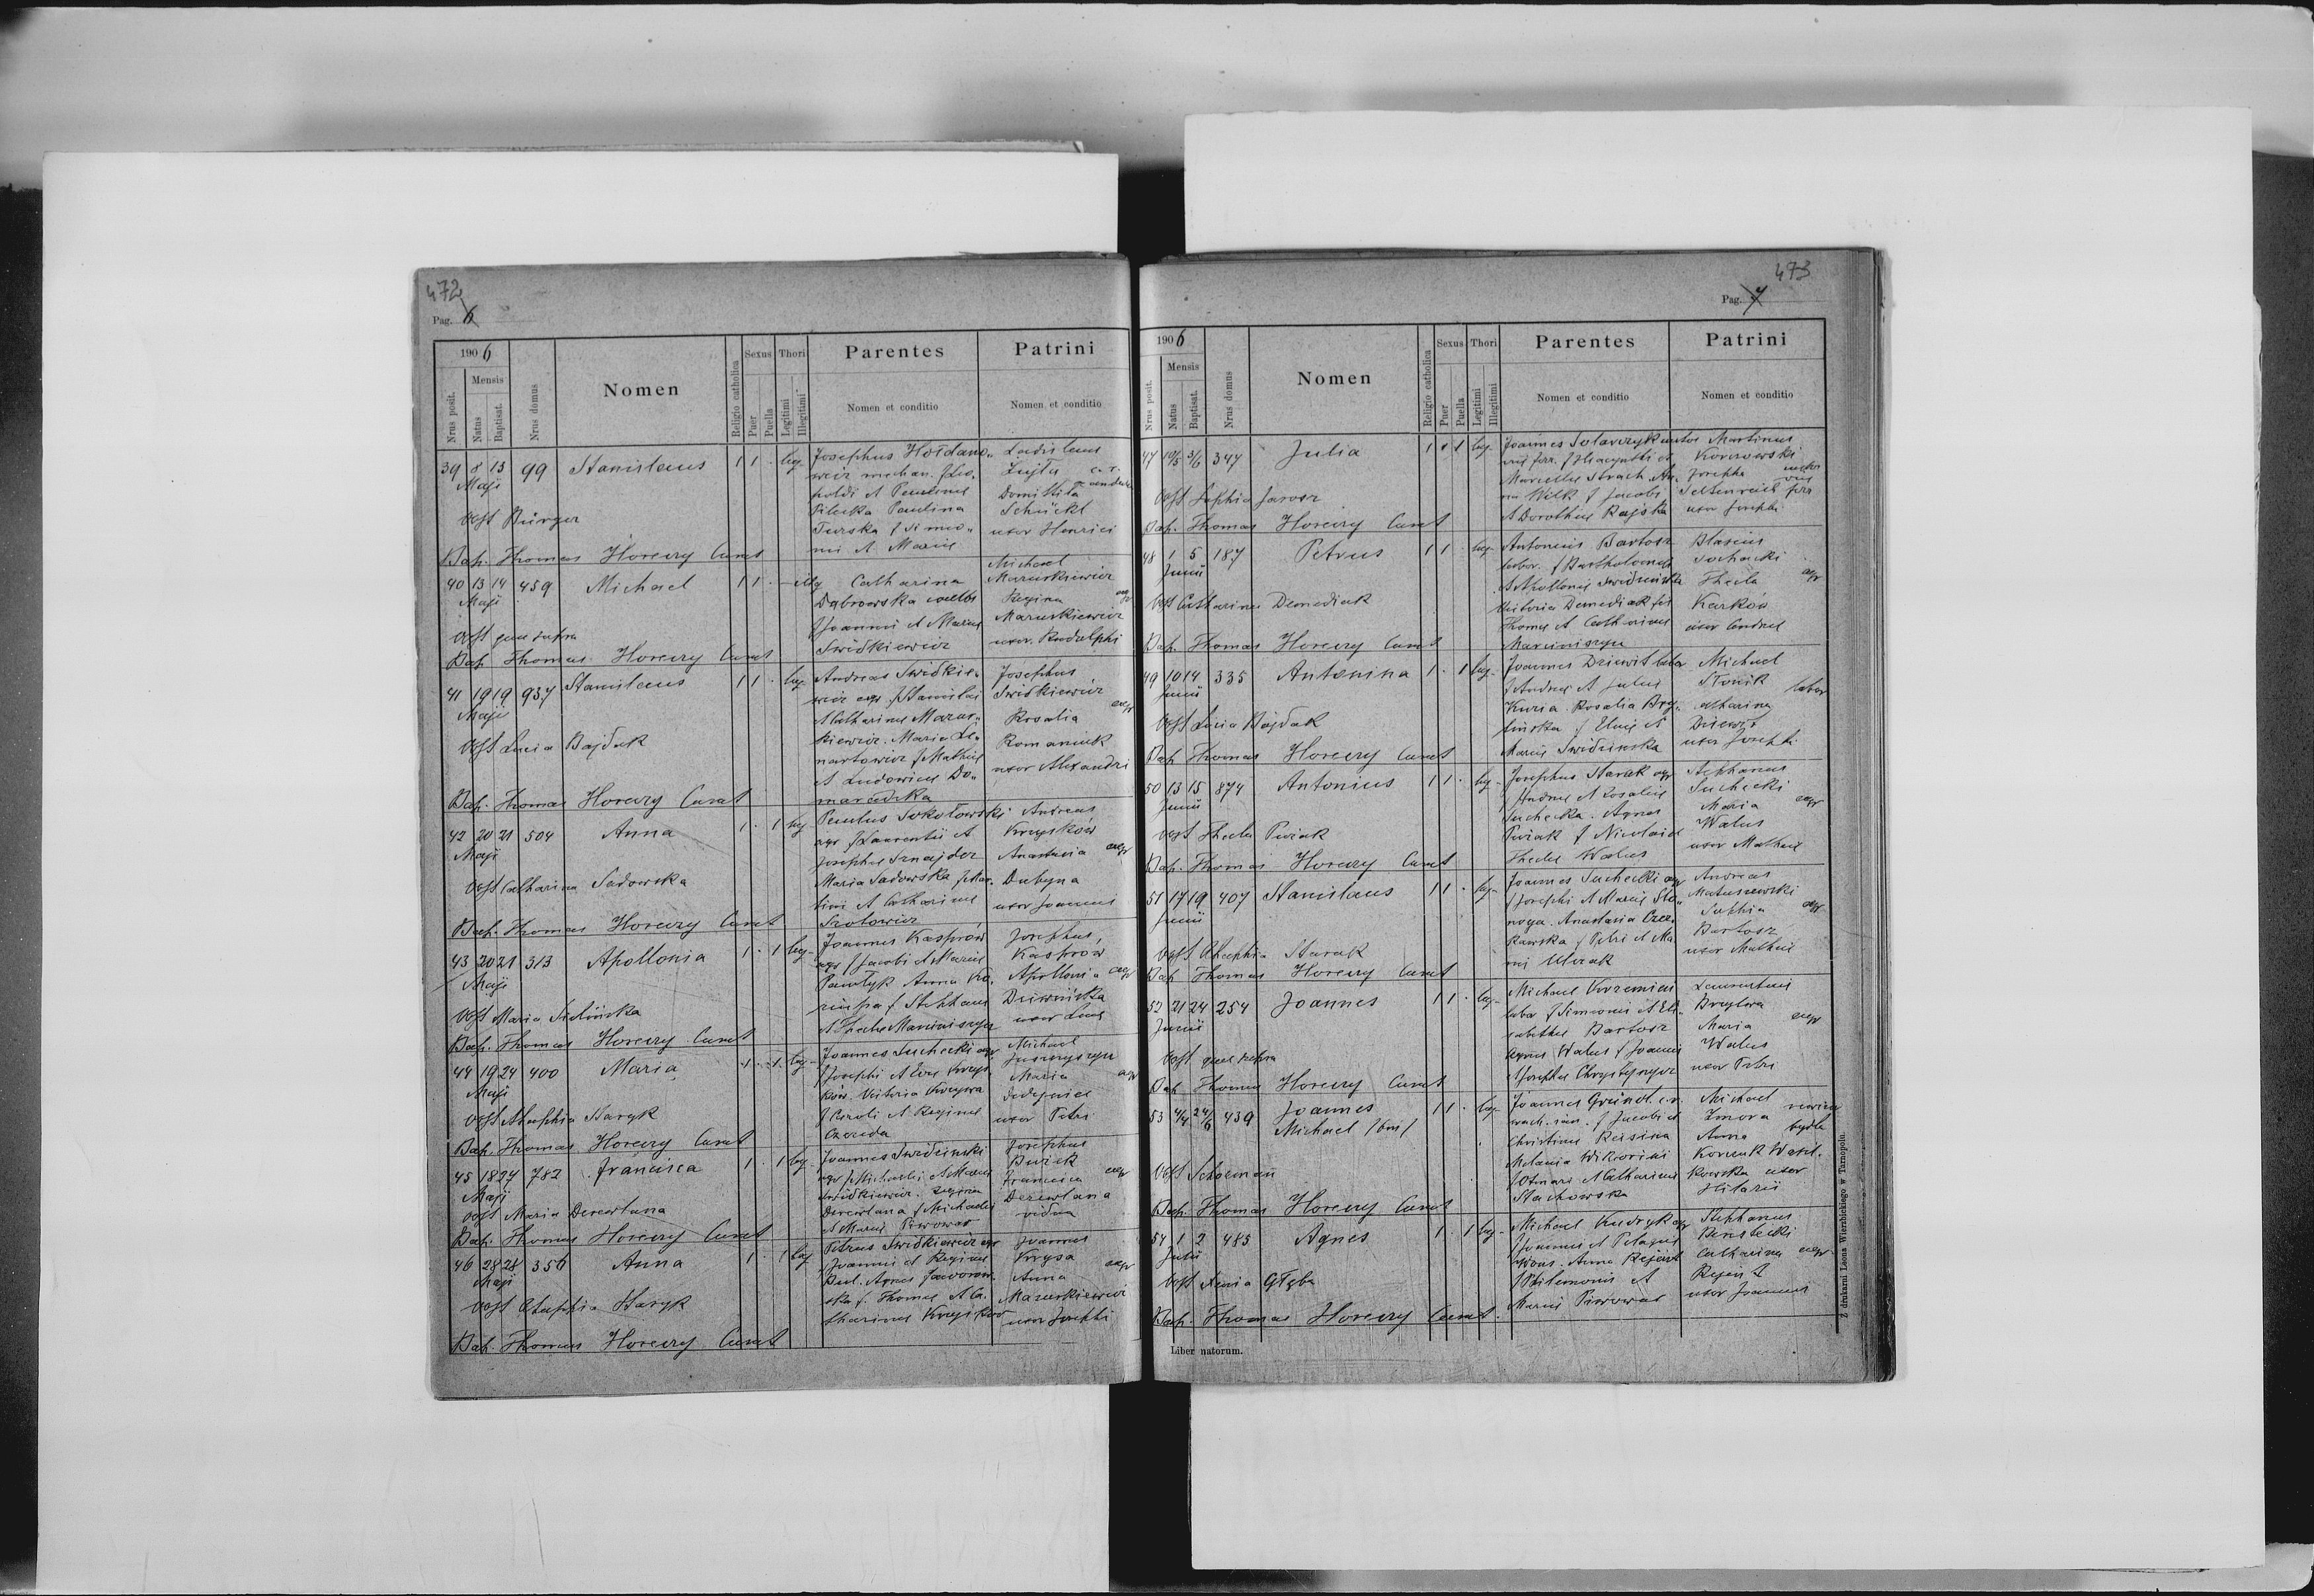 472
Pag. 6
1906
Nrus posit.
Mensis
Natus
Baptisat.
Nrus domus
Nomen
Religio catholica
Sexus
Puer
Puella
Thori
Legitimi
Illegitimi
Parentes
Nomen et conditio
Patrini
Nomen et conditio
39 8 13 99 Stanislaus 1 1 · leg.
Maji
Josephus
mechan.
poldi et Paulina
Pilecka Paulina
Turska f Simeo-
nis et Mariae
Ladislaus
Domittila
Schückl
uxor Henrici
Obst Bürger
Bap. Thomas Horeczy Curat
40 13 14 459 Michael 1 1 · illeg
Maji
Catharina
Dąbrowska
f Joannis et Mariae
Swidkiewicz
Michael
Maruszkiewicz
Regina agr
Maruszkiewicz
uxor Rudolphi
Obst quae supra
Bap. Thomas Horeczy Curat
41 19 19 937 Stanislaus 1 1 · leg.
Maji
Andreas Swidkie-
wicz agr f Stanislai
et Catharinae Marus-
kiewicz. Maria Le-
nartowicz f Mathiae
et Ludovicae Do-
maradzka
Josephus
Swidkiewicz
Rosalia agr
Romaniuk
uxor Alexandri
Obst Lucia Bajdak
Bap. Thomas Horeczy Curat
42 20 21 504 Anna 1 · 1 leg
Maji
Paulus Sokołowski
agr f Laurentii et
Josephae Sznajder
Maria Sadowska f Mar-
tini et Catharinae
Szotowicz
Andreas
Krzysków
Anastasia agr
Dubyna
uxor Joannis
Obst Catharina Sadowska
Bap. Thomas Horeczy Curat
43 20 21 313 Apollonia 1 · 1 leg-
Maji
Joannes Kasprów
agr f Jacobi et Mariae
Pawłyk Anna
f Stephani
et Theclae Marciniszyn
Josephus
Kasprów
Apollonia agr
Dziwińska
uxor Lucae
Obst Maria Sielińska
Bap. Thomas Horeczy Curat
44 19 24 400 Maria 1 · 1 leg-
Maji
Joannes Suchecki agr
f Josephi et Evae Krzys-
ków. Victoria Krzywa
f Caroli et Reginae
Czereda
Michael
Maria agr
uxor Petri
Obst Ahaphia Staryk
Bap. Thomas Horeczy Curat
45 18 27 782 Francisca 1 · 1 leg.
Maji
Joannes Swidzinski
agr f Michaelis et Mariae
Swidkiewicz. Regina
Derewlana f Michaelis
et Mariae Piwowar
Josephus
Francisca agr
Derewlana
vidua
Obst Maria Derewlana
Bap. Thomas Horeczy Curat
46 28 28 356 Anna 1 · 1 leg
Maji
Petrus Swidkiewicz agr
f Joannis et Reginae
Agnes Jawors-
ka f. Thomae et Ca-
tharinae Krzysków
Joannes
Krysa
Anna agr
Maruszkiewicz
uxor Josephi
Obst Ahaphia Staryk
Bap. Thomas Horeczy Curat
473
Pag. 7
1906
Nrus posit.
Mensis
Natus
Baptisat.
Nrus domus
Nomen
Religio catholica
Sexus
Puer
Puella
Thori
Legitimi
Illegitimi
Parentes
Nomen et conditio
Patrini
Nomen et conditio
47 10/5 3/6 347 Julia 1 · 1 leg.
Joannes
f Hiacynthi et
Marcellae Strach An-
na Wilk f Jacobi
et Dorotheae Rajska
Martinus
Korczowski
Josepha
uxor Josephi
Obst Sophia Jarosz
Bap. Thomas Horeczy Curat
48 1 5 187 Petrus 1 1 · leg-
Junii
Antonius Bartosz
labor. f Bartholomaei
et Apolloniae Swidzińska
Victoria Demediak f
Thomae et Catharinae
Marciniszyn
Blasius
Suchacki
Thecla agr
Karków
uxor Andreae
Obst Catharina Demediak
Bap. Thomas Horeczy Curat
49 10 14 335 Antonina 1 · 1 leg-
Junii
Joannes Dziewit labor
f Andreae et Juliae
Kuria. Rosalia
f Eliae et
Mariae Swidzinska
Michael
Słonik labor
Catharina
Dziewit
uxor Josephi
Obst Lucia Bajdak
Bap. Thomas Horeczy Curat
50 13 15 874 Antonius 1 1 · leg-
Junii
Josephus Starak agr
f Andreae et Rosaliae
Suchecka. Agnes
Pużak f Nicolai et
Theclae Walus
Stephanus
Suchecki
Maria agr
Walus
uxor Mathiae
Obst Thecla Pużak
Bap. Thomas Horeczy Curat
51 17 19 407 Stanislaus 1 1 · leg-
Junii
Joannes Suchecki agr
f Josephi et Mariae Sto-
noga. Anastasia Czer-
kawska f Petri et Ma-
riae
Andreas
Matuszewski
Sophia agr
Bartosz
uxor Mathiae
Obst Ahaphia Starak
Bap. Thomas Horeczy Curat
52 21 24 254 Joannes 1 1 · leg-
Junii
Michael Krzemień
labor f Simeonis et Eli-
sabethae Bartosz
Agnes Walus f Joannis
et Josephae Chrystyszyn
Laurentius
Maria agr
Walus
uxor Petri
Obst quae supra
Bap. Thomas Horeczy Curat
53 4/4 24/6 439 Joannes 1 1 · leg-
Michael /bin/
Joannes Gründ. c.r.
f Jacobi et
Christinae Reisina
Melania Wiktorini
f Otmari et Catharinae
Stachowska
Michael
Zmora
Anna
Korczuk Wasil-
kowska uxor
Hilarii
Obst Schoeman
Bap. Thomas Horeczy Curat
54 1 2 485 Agnes 1 · 1 leg-
Julii
Michael Kudryk agr
f Joannis et Pelagiae
Anna Rejent
f Philemonis et
Mariae Piwowar
Stephanus
Catharina agr
Rejent
uxor Joannis
Obst Xenia Głęba
Bap. Thomas Horeczy Curat.
Liber natorum.
Z drukarni Leona Wierzbickiego w Tarnopolu.